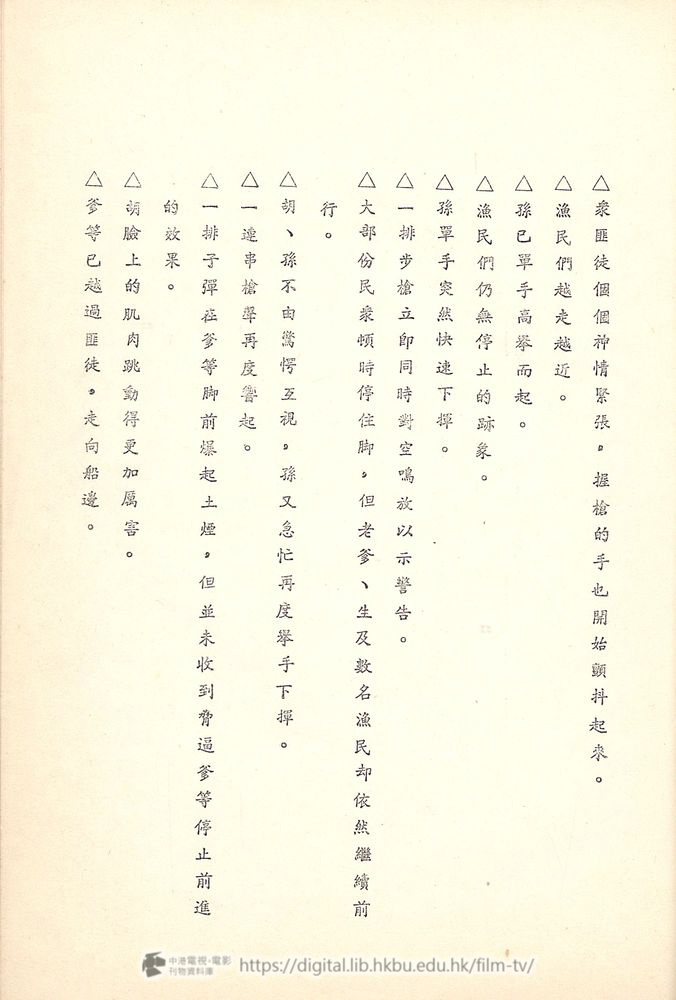 △眾匪徒個個神情緊張，握槍的手也開始顫抖起來。
△漁民們越走越近。
△孫已單手高舉而起。
△漁民們仍無停止的跡象。
△孫單手突然快速下揮。
△一排步槍立即同時對空鳴放以示警告。
△大部份民眾頓時停住脚，但老爹、生及數名漁民却依然繼續前
行。
△胡、孫不由驚愕互視，孫又急忙再度舉手下揮。
△一連串槍聲再度響起。
△一排子彈在爹等脚前爆起土煙，但並未收到脅逼爹等停止前進
的效果。
△胡臉上的肌肉跳動得更加厲害。
△爹等已越過匪徒，走向船邊。
中港電視·電影
刊物資料庫
https://digital.lib.hkbu.edu.hk/film-tv/